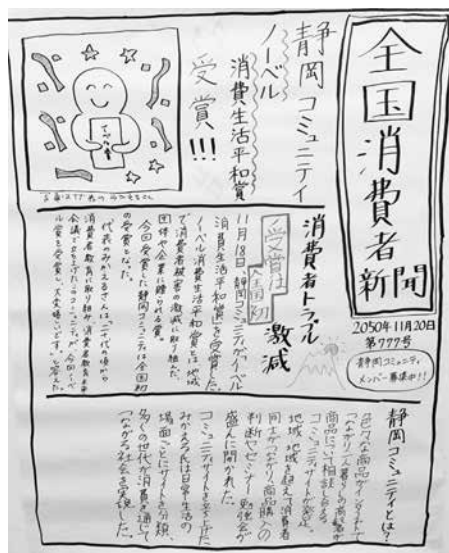 全国消費者新聞
2050年11月20日
第777号
静岡コミュニティ
メンバー募集中!!
静岡コミュニティ
ノーベル
消費生活平和賞
受賞!!!
消費者トラブル
激減
受賞は
全国初
11月18日、静岡コミュニティが「ノーベル
消費生活平和賞」を受賞した。
ノーベル消費生活平和賞とは、地域
で消費者被害の激減に取り組んだ
団体や企業に贈られる賞。
今回受賞した静岡コミュニティは全国初
の受賞となった。
代表のみかえるさんは「二十代の頃から
消費者教育に取り組み、消費者教育
会議で立ち上げたコミュニティが、今回ノーベ
ル賞を受賞し、大変嬉しいです」と答えた。
静岡コミュニティとは?
色々な商品が
つながり、一人暮らしの高齢者が
商品について相談しあえる
コミュニティサイトが発足。
地域、地域を超えて消費者
同士がつながり、商品購入の
判断やセミナー、勉強会が
盛んに開かれた。
コミュニティサイトを立ち上げた
みかえる氏は日常生活の
場面ごとにサイトを分類、
多くの世代が消費を通じて
つながる社会を実現した。